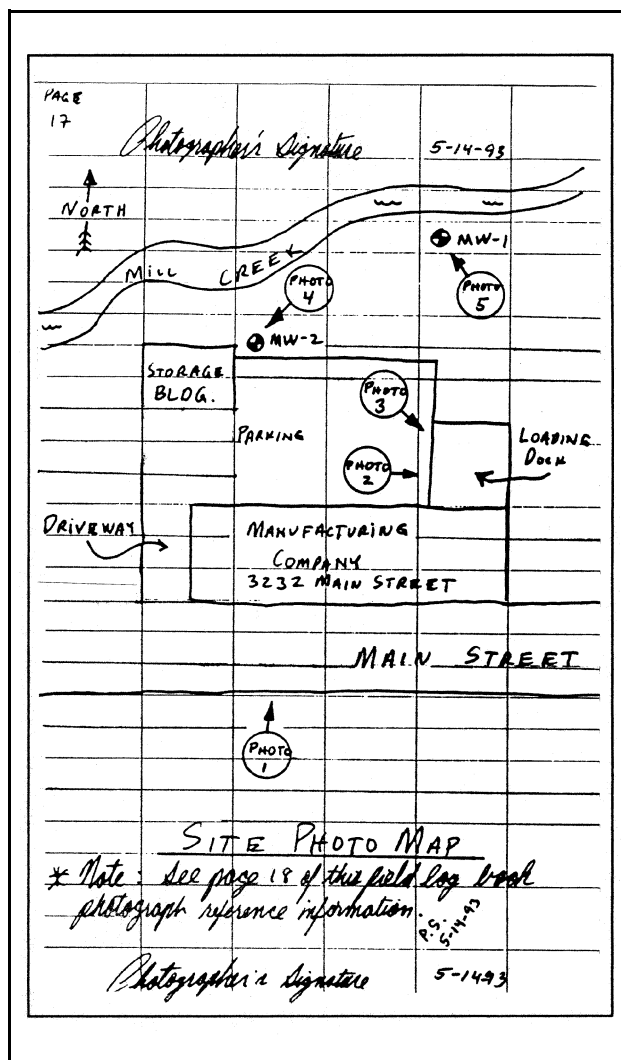 PAGE
17
Photographer's Signature 5-14-93
NORTH
MILL CREEK
MW-1
PHOTO
4
PHOTO
5
MW-2
STORAGE
BLDG.
PHOTO
3
PARKING
LOADING
DOCK
PHOTO
2
DRIVEWAY
MANUFACTURING
COMPANY
3232 MAIN STREET
MAIN STREET
PHOTO
1
SITE PHOTO MAP
* Note: See page 18 of this field log book
photograph reference information.
P.S.
5-14-93
Photographer's Signature 5-14-93